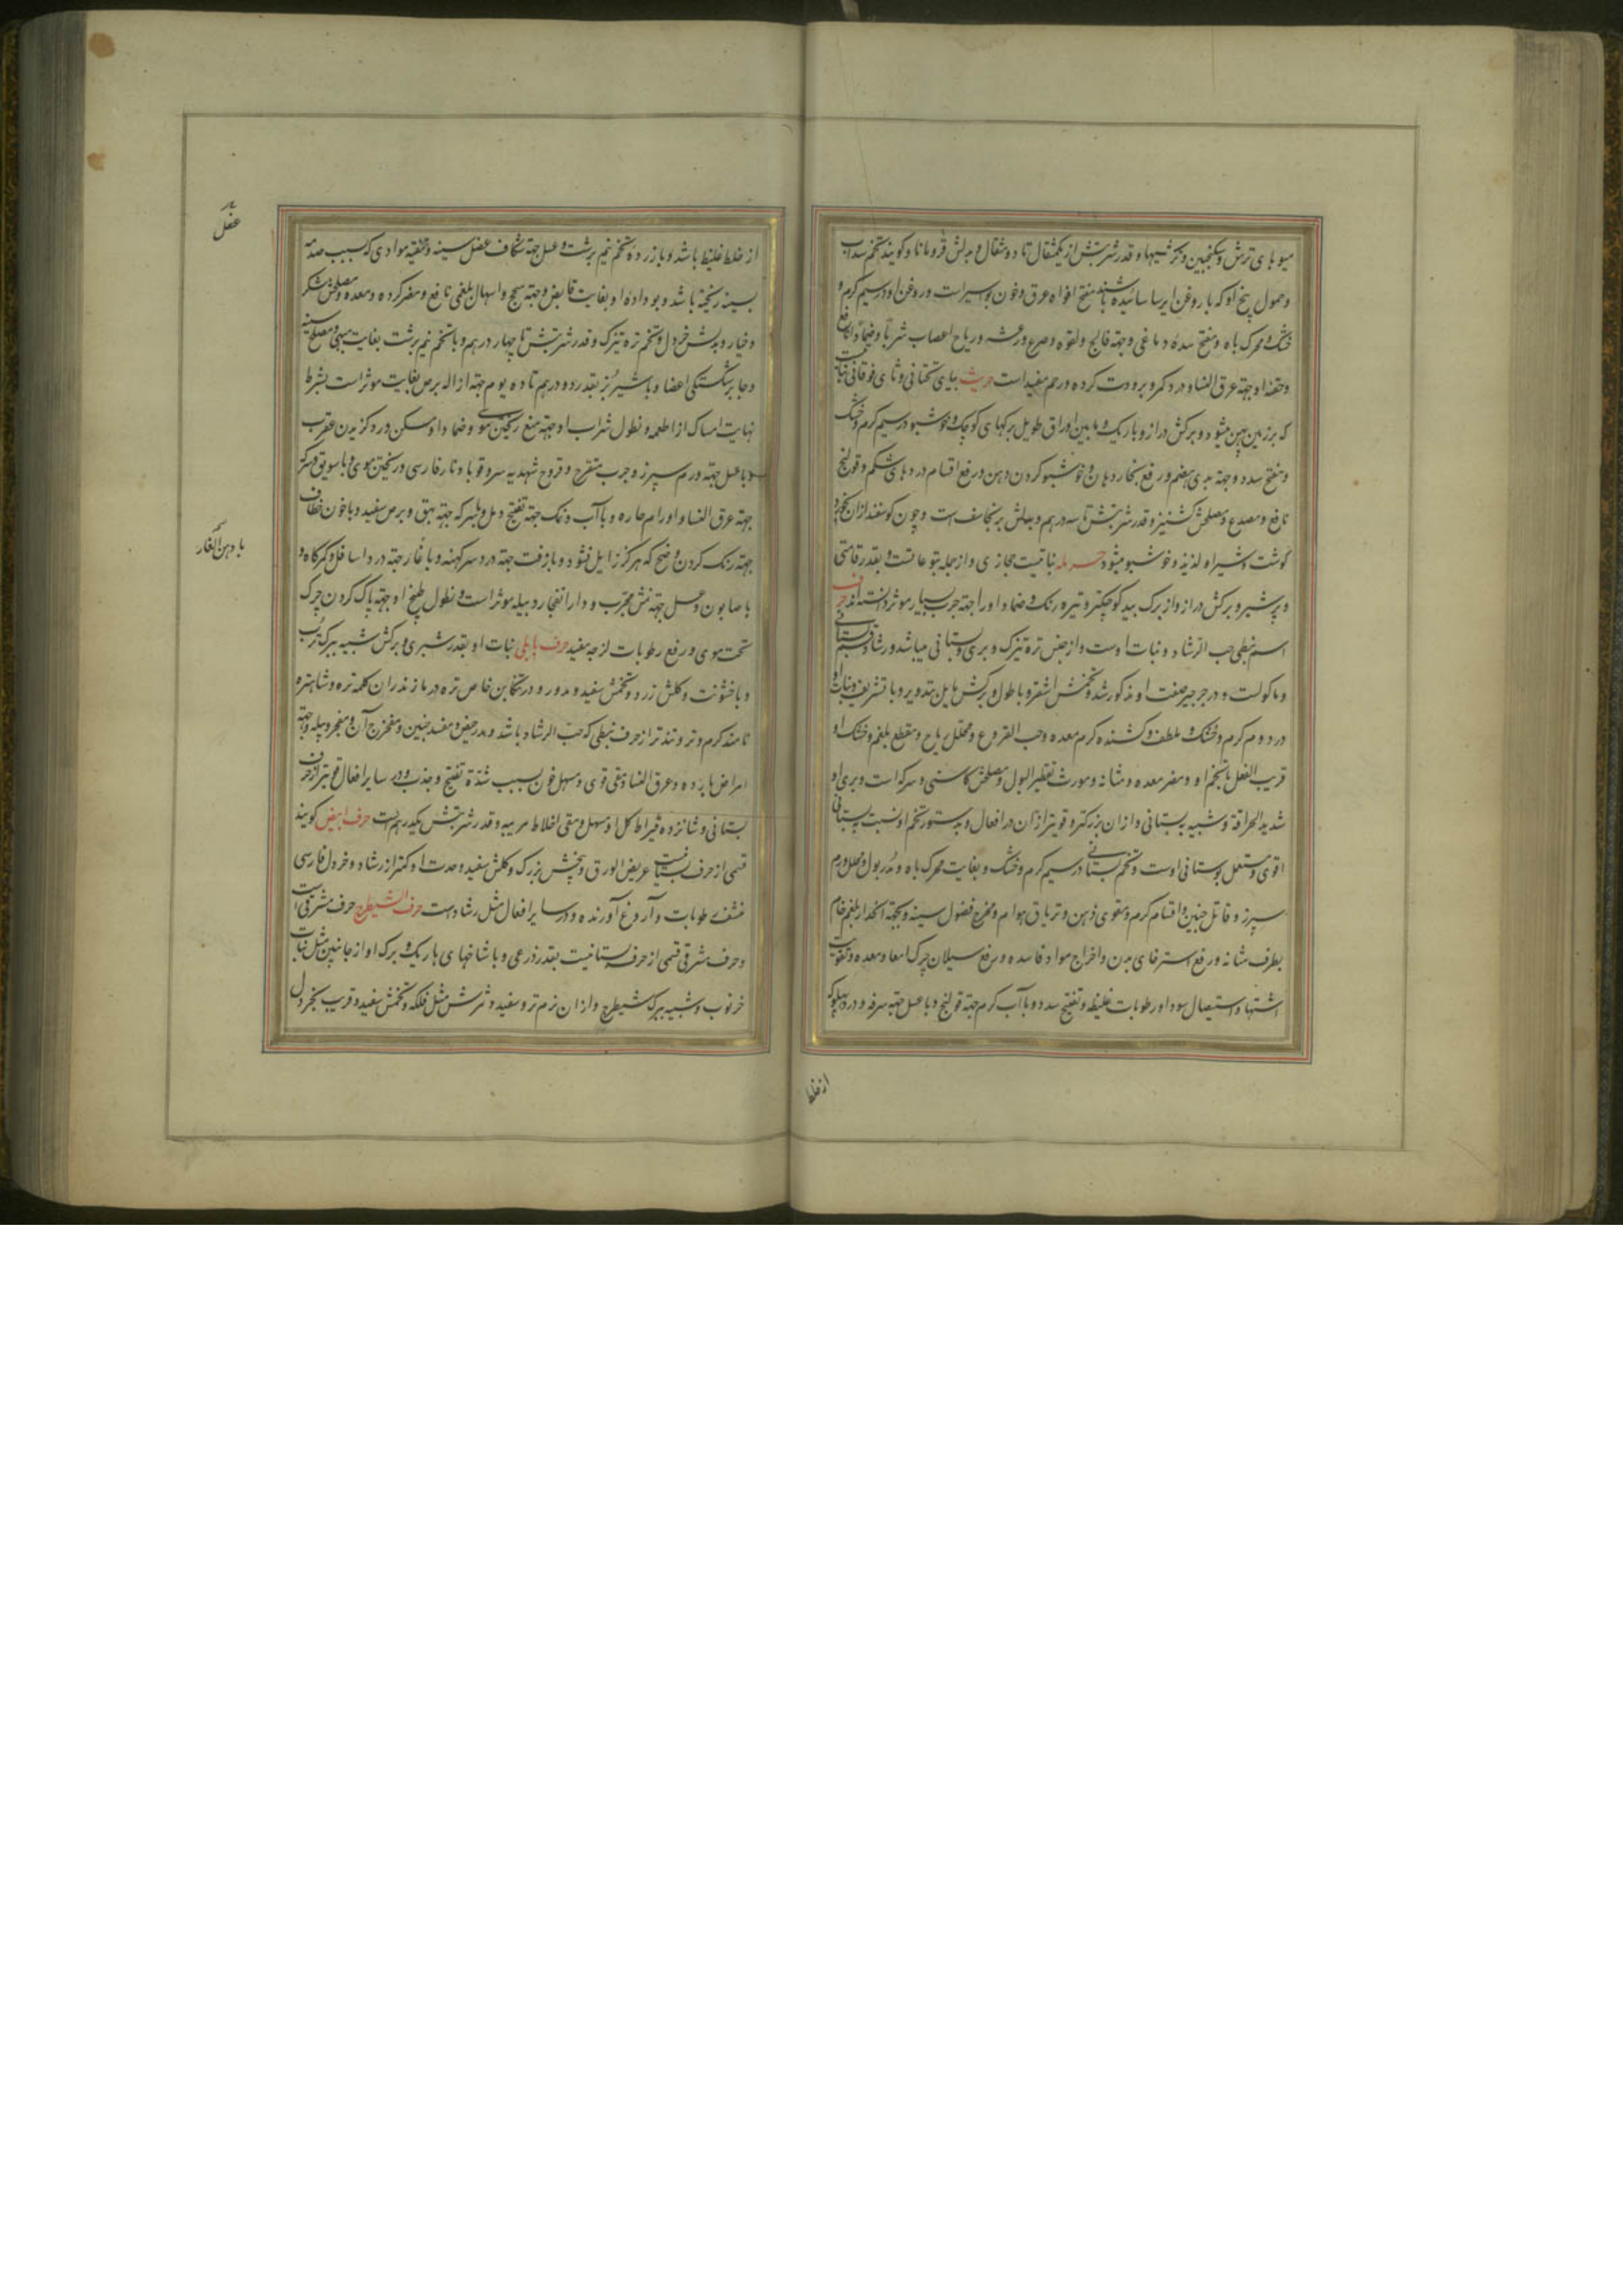 میوهای ترش و سکنجبین و ترشیها و قدر شربتش از یکمثقال تا دو مثقال و بدلش قردمانا و گویند تخم سداب
و حمول بیخ او که با روغن ایرسا سائیده باشند مفتح افواه عروق و خون بواسیر است و روغن او در سیم گرم و
خشک و محرک باه و مفتح سدهٔ دماغی و جهة فالج و لقوه و صرع و رعشه و ریاح اعصاب شربا و ضمادا نافع
و حقنهٔ او جهة عرق النسا و درد کمر و برودت گرده و رحم مفید است حریث بیای تحتانی و ثای فوقانی نباتیست
که بر زمین پهن میشود و برگش دراز و باریک و مابین اوراق طویل برگهای کوچک و خوشبو در سیم گرم و خشک
و مفتح سدد و جهة بدی هضم و رفع بخار دهان و خوشبو کردن دهن و رفع اقسام دردهای شکم و قولنج
نافع و مصدع و مصلحش کشنیز و قدر شربتش تا سه درهم و بدلش برنجاسف است و چون گوسفند از آن بچرد
گوشت و شیر او لذیذ و خوشبو میشود حرمله نباتیست حجازی و از جمله یتوعاتست و بقدر قامتی
و پرشیر و برگش دراز و از برگ بید کوچکتر و تیره رنگ و ضماد او را جهة جرب بسیار موثر دانسته‌اند حرف
اسم نبطی حب الرشاد و نبات اوست و از جنس تره تیزک و بری و بستانی میباشد و رشاد قسم بستانی
و ماکولست و در جرجیر صفت او مذکور شد و تخمش اشقر و با طول و برگش مایل بتدویر و با تشریف و نبات او
در دوم گرم و خشک و ملطف و کشنده کرم معده و حب القرع و محلل ریاح و مقطع بلغم و خشک او
قریب الفعل بتخم او و مضر معده و مثانه و مورث تقطیر البول و مصلحش کاسنی و سرکه است و بری او
شدید الحرافة و شبیه به بستانی و از آن بزرگتر و قویتر از آن در افعال و بدستور تخم او نسبت ببستانی
اقوی و مستعمل بوستانی اوست و تخم بستانی در سیم گرم و خشک و بغایت محرک باه و مدر بول و محلل ورم
سپرز و قاتل جنین و اقسام کرم و مقوی ذهن و تریاق هوام و مخرج فضول سینه و بجهة انحدار بلغم خام
بطرف مثانه و رفع استرخای بدن و اخراج مواد فاسده و رفع سیلان چرک امعا و معده و تقویت
اشتها و استیصال سودا و رطوبات غلیظه و تفتیح سدد و با آب گرم جهة قولنج و با عسل جهة سرفه و درد پهلو که
از غلظ
از خلط غلیظ باشد و با زردهٔ تخم نیم برشت و عسل جهة شکاف عضل سینه و تنقیه موادی که بسبب صدمه
بسینه ریخته باشد و بو دادهٔ او بغایت قابض و جهة سحج و اسهال بلغمی نافع و مضر گرده و معده و مصلحش شکر
و خیار و بدلش خردل و تخم تره تیزک و قدر شربتش تا چهار درهم و با تخم نیم برشت بغایت مبهی و مصلح سینه
و جابر شکستگی اعضا و با شیر بز بقدر دو درهم تا ده یوم جهة ازاله برص بغایت موثر است بشرط
نهایت امساک از اطعمه و نطول شراب او جهة منع ریختن موی و ضماد او مسکن درد گزیدن عقرب
و با عسل جهة ورم سپرز و جرب متقرح و قروح شهدیه سر و قوبا و نار فارسی و ریختن موی و با سویق و سرکه
جهة عرق النسا و اورام حاره و با آب و نمک جهة تفتیح دمل و با سرکه جهة بهق و برص سفید و با خون خطاف
جهة رنگ کردن وضح که هرگز زایل نشود و با زفت جهة درد سر کهنه و با غار جهة درد اسافل و کمرگاه و
با صابون و عسل جهة نمش مجرب و در انفجار دبیله موثر است و نطول طبیخ او جهة پاک کردن چرک
تحت موی و رفع رطوبات لزجه مفید حرف بابلی نبات او بقدر شبری و برگش شبیه ببرگ ترب
و با خشونت و گلش زرد و تخمش سفید و مدور و در تنکابن خاص تره در مازندران کلمه تره و شاهتره
نامند گرم و تر و تندتر از حرف نبطی که حب الرشاد باشد و مدر حیض و مفسد جنین و مخرج آن و مفجر دبیله و جهة
امراض بارده و عرق النسا و مقی قوی و مسهل خون بسبب شدة تفتیح و جذب و در سایر افعال قویتر از حرف
بستانی و شانزده قیراط کل او مسهل و مقی اخلاط مریه و قدر شربتش یکدرهمست حرف ابیض گویند
قسمی از حرف بستانیست عریض الورق و بیخش بزرگ و گلش سفید و حدت او کمتر از رشاد و خردل فارسی
منشف رطوبات و آروغ آورنده و در سایر افعال مثل رشادست حرف الشیطرج حرف مشرقی است
و حرف مشرقی قسمی از حرف بستانیست بقدر ذرعی و با شاخهای باریک و برگ او از جانبین مثل نبات
خرنوب و شبیه ببرگ شیطرج و از آن نرم تر و سفید و ثمرش مثل فلکه و تخمش سفید و قریب بخردل
عضل
با دهن الغار